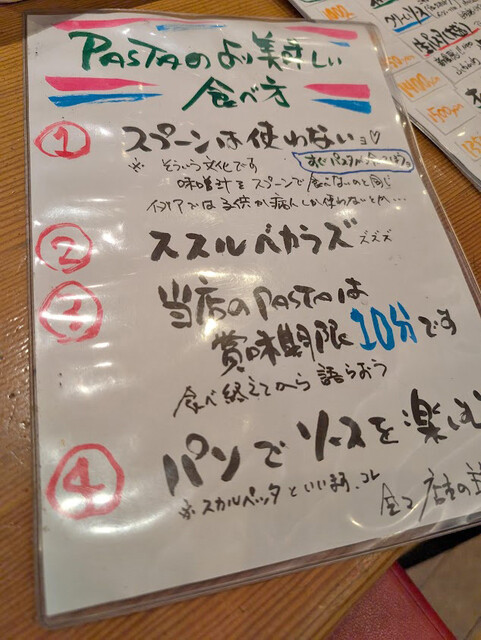 PASTAのより美味しい
食べ方
① スプーンは使わないョ♡
※ そういう文化です
味噌汁をスプーンで食べないのと同じ
イタリアでは子供か病人しか使わないとか…
② ススルベカラズ ズズズ
③ 当店のPASTAは
賞味期限 10分です
食べ終えてから語らおう
④ パンでソースを楽しむ
※スカルペッタといいます、コレ
全て店主の